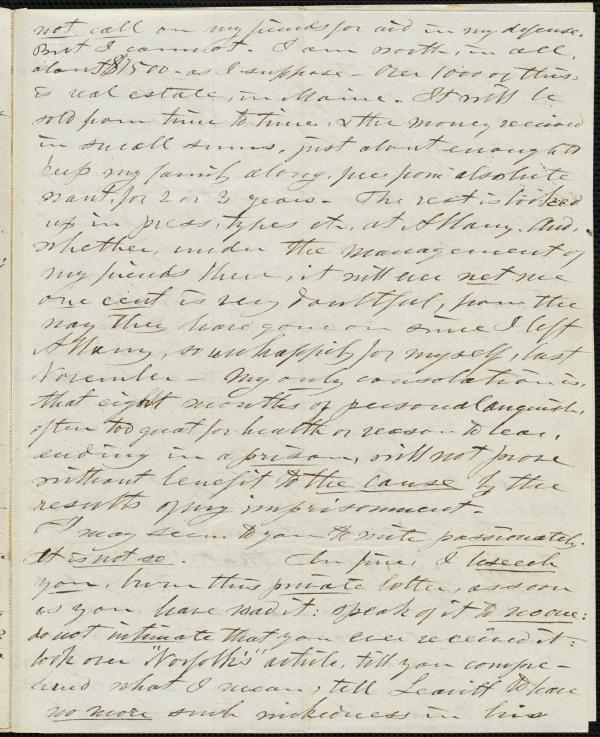 not call on my friends for aid in my defense.
But I cannot. I am worth, in all,
about $1500 - as I suppose - Over 1000 of this
is real estate, in Maine. It will be
sold from time to time, & the money received
in small sums, just about enough to
keep my family along, free from absolute
want, for 2 or 3 years. The rest is locked
up in press, types etc. at Albany. And,
whether, under the management of
my friends there, it will ever net me
one cent is very doubtful, from the
way they have gone on since I left
Albany, so unhappily for myself, last
November - My only consolation is,
that eight months of personal anguish,
often too great for health or reason to bear,
ending in a prison, will not prove
without benefit to the cause by the
results of my imprisonment.
I may seem to you to write passionately.
It is not so. In fine, I beseech
you, burn this private letter, as soon
as you have read it: speak of it to no one:
do not intimate that you ever received it:
look over "Norfolk's" article, till you compre-
hend what I mean; tell Leavitt to have
no more such wickedness in his